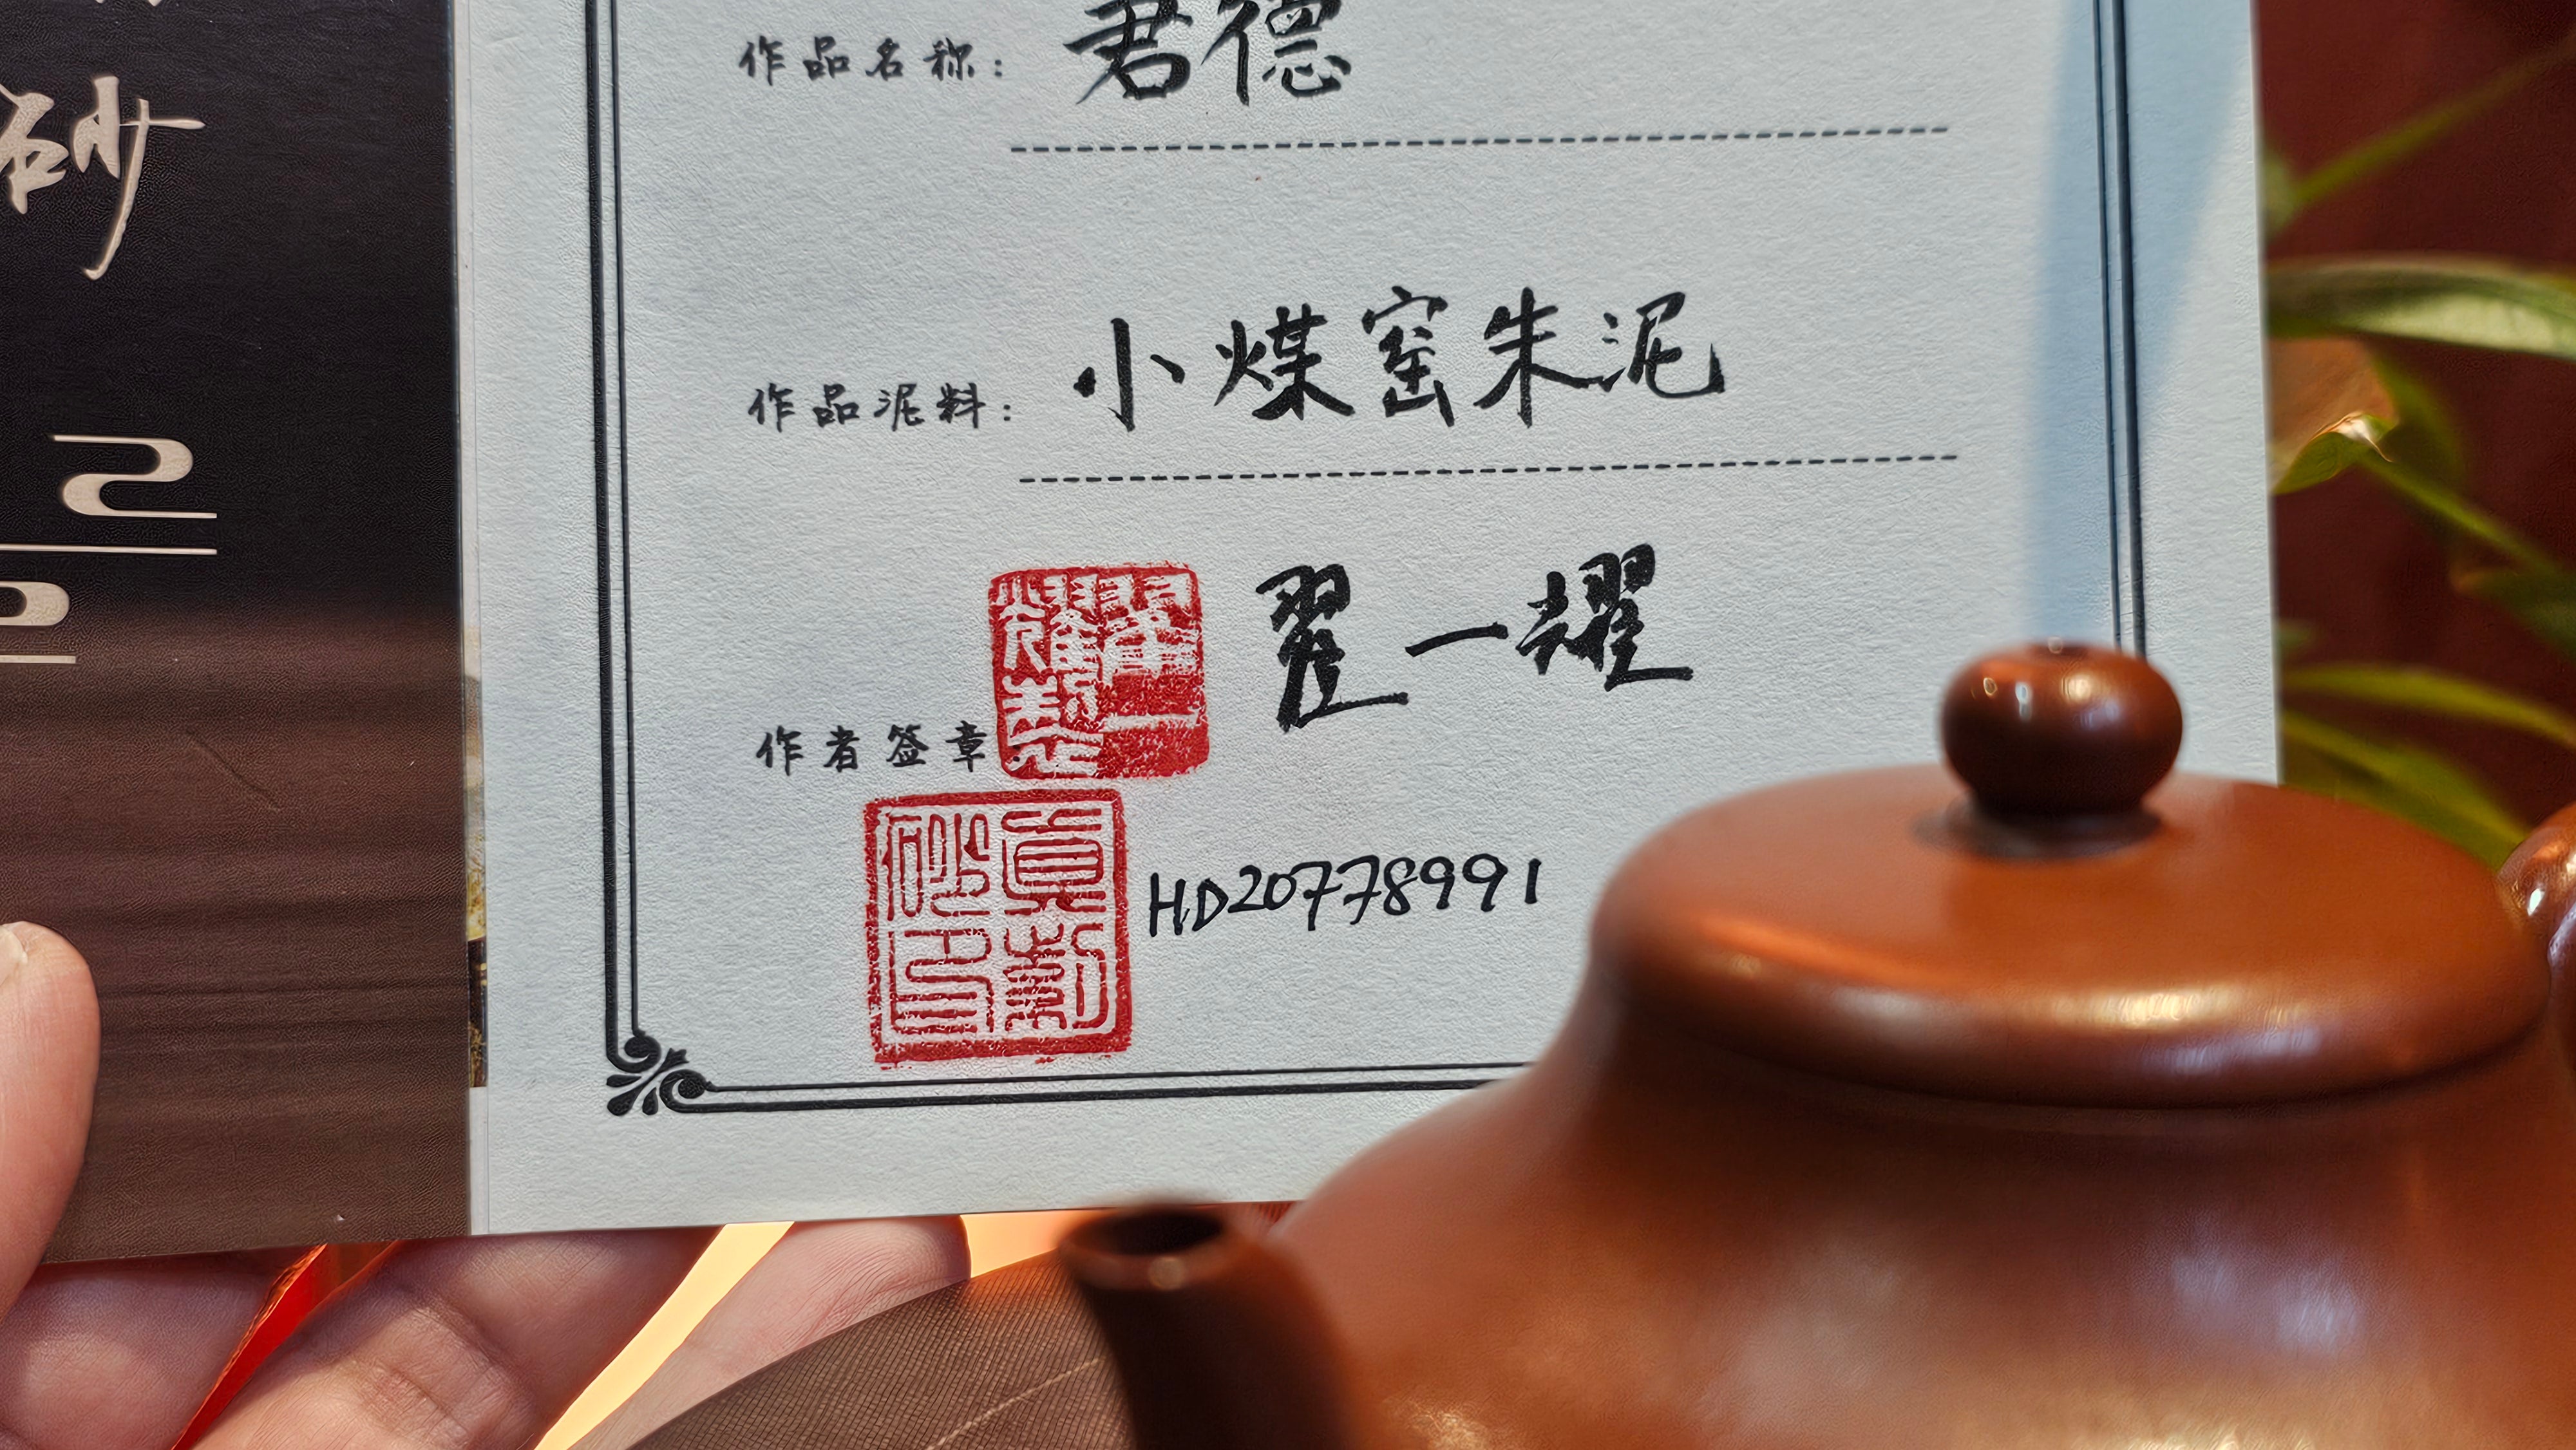 砂
作品名称：君德
作品泥料：小煤窑朱泥
作者签章
翟一耀
翟一耀製
HD207778991